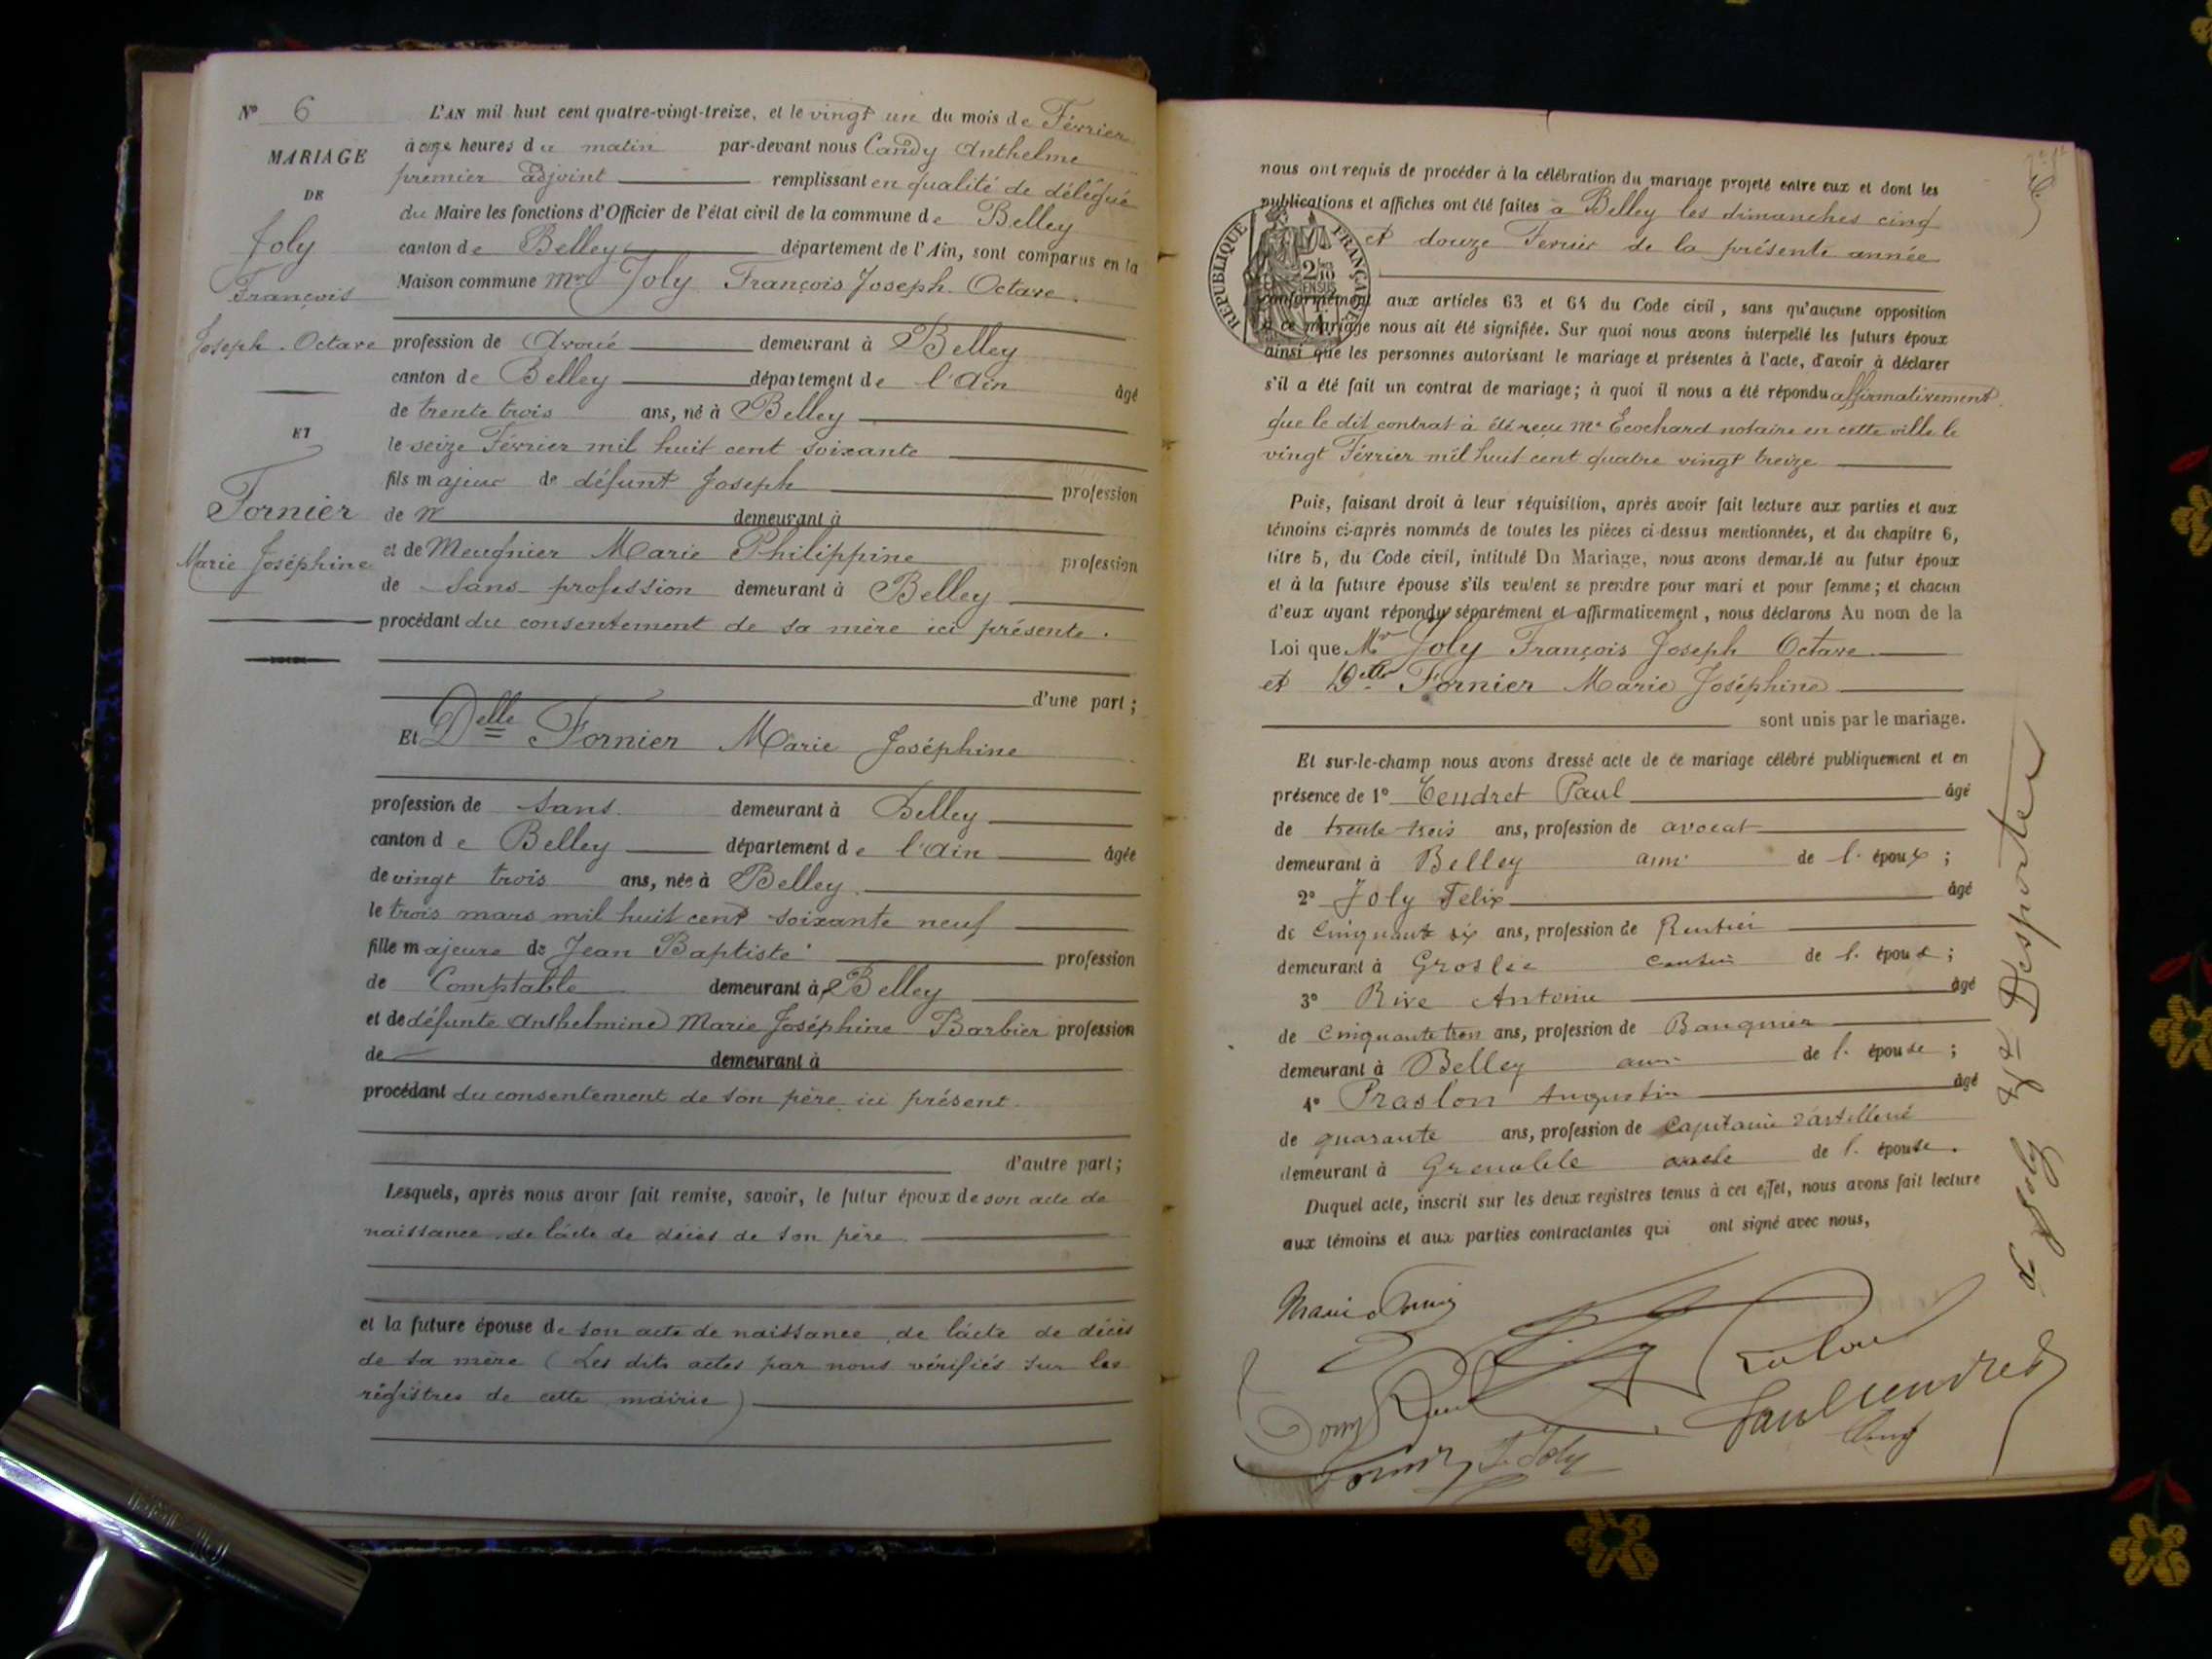 N° 6
MARIAGE
DE
Joly
François
Joseph. Octave
ET
Fornier
Marie Joséphine
L'AN mil huit cent quatre-vingt-treize, et le vingt un du mois de Février
à onze heures du matin par-devant nous Candy Anthelme
premier adjoint remplissant en qualité de délégué
du Maire les fonctions d'Officier de l'état civil de la commune de Belley
canton de Belley département de l'Ain, sont comparus en la
Maison commune Mr Joly François Joseph. Octave.
profession de Avoué demeurant à Belley
canton de Belley département de l'Ain âgé
de trente trois ans, né à Belley
le seize Février mil huit cent soixante
fils majeur de défunt Joseph profession
de demeurant à
et de Meugnier Marie Philippine profession
de Sans profession demeurant à Belley
procédant du consentement de sa mère ici présente.
d'une part;
Et Delle Fornier Marie Joséphine
profession de Sans demeurant à Belley
canton de Belley département de l'Ain âgée
de vingt trois ans, née à Belley
le trois mars mil huit cent soixante neuf
fille majeure de Jean Baptiste profession
de Comptable demeurant à Belley
et de défunte Anthelmine Marie Joséphine Barbier profession
de demeurant à
procédant du consentement de son père ici présent.
d'autre part;
Lesquels, après nous avoir fait remise, savoir, le futur époux de son acte de
naissance, de l'acte de décès de son père.
et la future épouse de son acte de naissance, de l'acte de décès
de sa mère (Les dits actes par nous vérifiés sur les
régistres de cette mairie)
nous ont requis de procéder à la célébration du mariage projeté entre eux et dont les
publications et affiches ont été faites à Belley les dimanches cinq
et douze Fevrier de la présente année
REPUBLIQUE FRANÇAISE
conformément aux articles 63 et 64 du Code civil, sans qu'aucune opposition
à ce mariage nous ait été signifiée. Sur quoi nous avons interpellé les futurs époux
ainsi que les personnes autorisant le mariage et présentes à l'acte, d'avoir à déclarer
s'il a été fait un contrat de mariage; à quoi il nous a été répondu affirmativement
que le dit contrat à été reçu Me Ecochard notaire en cette ville le
vingt Février mil huit cent quatre vingt treize
Puis, faisant droit à leur réquisition, après avoir fait lecture aux parties et aux
témoins ci-après nommés de toutes les pièces ci-dessus mentionnées, et du chapitre 6,
titre 5, du Code civil, intitulé Du Mariage, nous avons demandé au futur époux
et à la future épouse s'ils veulent se prendre pour mari et pour femme; et chacun
d'eux ayant répondu séparément et affirmativement, nous déclarons Au nom de la
Loi que Mr Joly François Joseph Octave
et Delle Fornier Marie Joséphine
sont unis par le mariage.
Et sur-le-champ nous avons dressé acte de ce mariage célébré publiquement et en
présence de 1° Tendret Paul âgé
de trente trois ans, profession de avocat
demeurant à Belley ami de l. époux;
2° Joly Felix âgé
de Cinquante six ans, profession de Rentier
demeurant à Groslée cousin de l. époux;
3° Rive Antoine âgé
de Cinquante trois ans, profession de Banquier
demeurant à Belley ami de l. épouse;
4° Praslon Augustin âgé
de quarante ans, profession de Capitaine d'artillerie
demeurant à Grenoble oncle de l. épouse.
Duquel acte, inscrit sur les deux registres tenus à cet effet, nous avons fait lecture
aux témoins et aux parties contractantes qui ont signé avec nous,
Paul Tendret
F. Joly